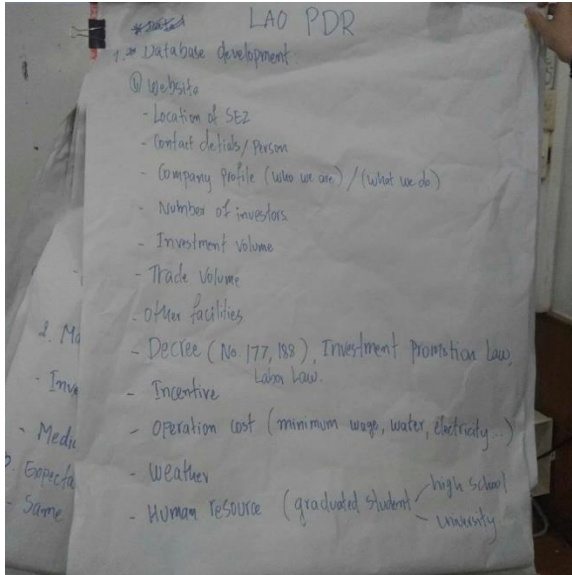 LAO PDR
1. * Database development
① Website
- Location of SEZ
- Contact detials / Person
- Company profile (who we are) / (what we do)
- Number of investors
- Investment volume
- Trade volume
- Other facilities
- Decree (No. 177, 188), Investment promotion Law,
Labor Law.
- Incentive
- Operation cost (minimum wage, water, electricity...)
- Weather
- Human resource (graduated student
high school
university
2. Mo
- Inve
- Media
Expecta
- Same